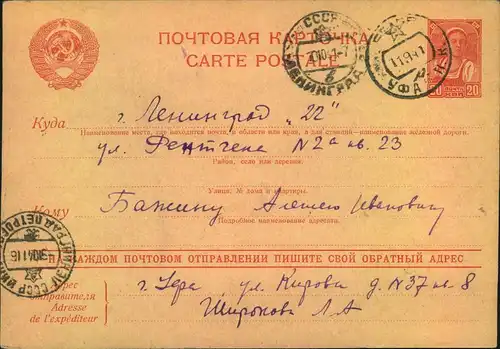 ПОЧТОВАЯ КАРТОЧКА
CARTE POSTALE
СССР
ЛЕНИНГРАД
УФА
20 20
Куда
г. Ленинград „22"
Наименование места, где находится почта, и области или края, а для станции—наименование железной дороги.
ул. Рентгена N2а кв. 23
Район, село или деревня.
Улица, № дома и квартиры.
Кому
Бажину Алексею Ивановичу
Подробное наименование адресата.
НА КАЖДОМ ПОЧТОВОМ ОТПРАВЛЕНИИ ПИШИТЕ СВОЙ ОБРАТНЫЙ АДРЕС
Адрес
отправителя
Adresse
de l'expéditeur
г. Уфа ул. Кирова д. N37 кв. 8
Широкова Л А